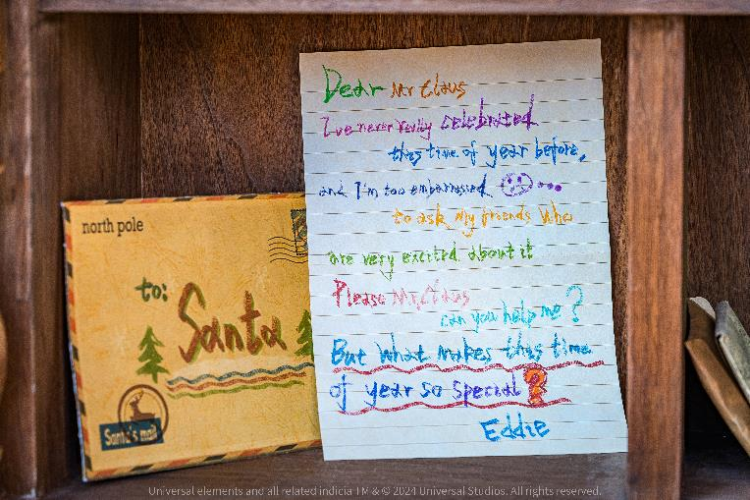 north pole
to:
Santa
Santa's mail
Dear Mr Claus
I've never really celebrated
this time of year before,
and I'm too embarrassed
to ask my friends who
are very excited about it
Please Mr, Claus
can you help me?
But what makes this time
of year so special?
Eddie
Universal elements and all related indicia TM & © 2024 Universal Studios. All rights reserved.